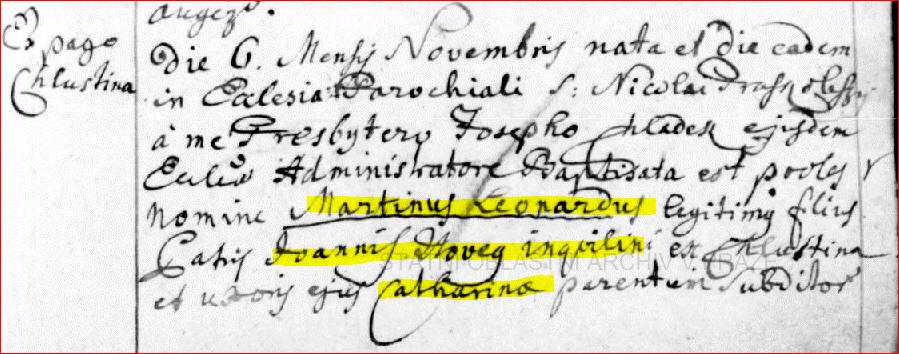 augez.
Ex pago
Chlustina
Die 6. Mensis Novembris nata et die eadem
in Ecclesia Parochiali S: Nicolai
à me Presbytero Josepho Hladek ejusdem
Ecclae Administratore Baptisata est proles
nomine Martinus Leonardus legitimg filius
Patris Joannis inquilini ex Chlustina
et uxoris ejus Catharina parentum subditor
STÁTNÍ OBLASTNÍ ARCHIV V PRAZE